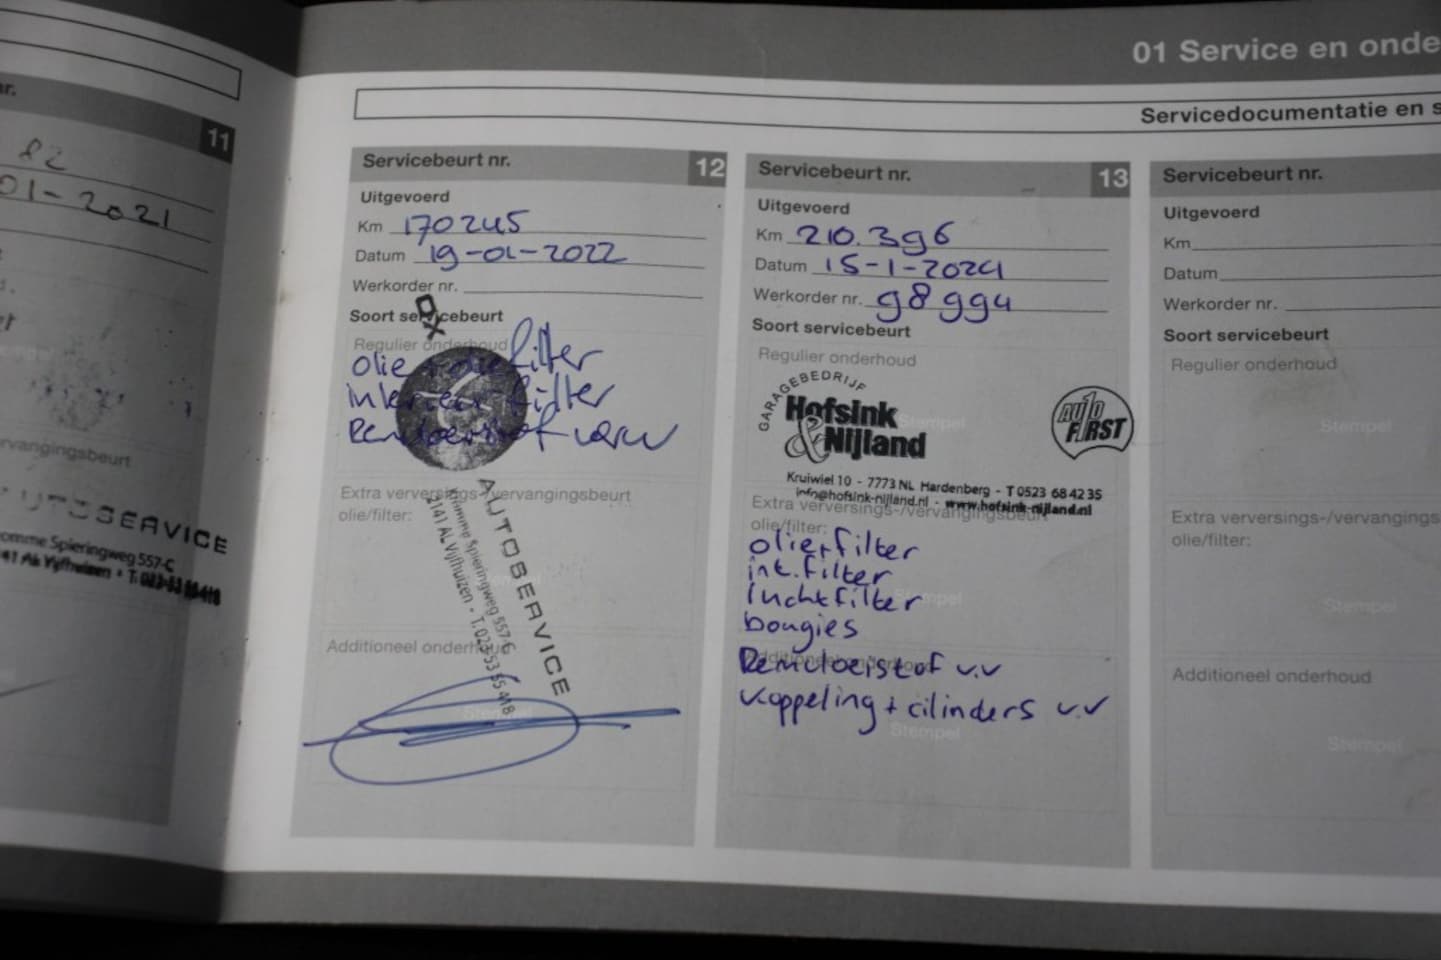 01 Service en onde
Servicedocumentatie en s
nr.
11
82
01-2021
rvangingsbeurt
UTOSERVICE
omme Spieringweg 557-C
41 AL Vijfhuizen • T. 023-53 55 418
Servicebeurt nr. 12
Uitgevoerd
Km 170245
Datum 19-01-2022
Werkorder nr.
Soort servicebeurt
Regulier onderhoud
olie + oliefilter
interieur filter
Remvloeistof verv
Extra verversings-/vervangingsbeurt
olie/filter:
AUTOSERVICE
Kromme Spieringweg 557-C
2141 AL Vijfhuizen • T. 023-53 55 418
Additioneel onderhoud
Stempel
Servicebeurt nr. 13
Uitgevoerd
Km 210.396
Datum 15-1-2024
Werkorder nr. 98994
Soort servicebeurt
Regulier onderhoud
GARAGEBEDRIJF
Hofsink
& Nijland
AUTO
FIRST
Stempel
Kruiwiel 10 - 7773 NL Hardenberg - T 0523 68 42 35
info@hofsink-nijland.nl - www.hofsink-nijland.nl
Extra verversings-/vervangingsbeurt
olie/filter:
olie+filter
int.filter
luchtfilter
Stempel
bougies
Additioneel onderhoud
Remvloeistof v.v
Koppeling + cilinders v.v
Stempel
Servicebeurt nr.
Uitgevoerd
Km
Datum
Werkorder nr.
Soort servicebeurt
Regulier onderhoud
Stempel
Extra verversings-/vervangings
olie/filter:
Stempel
Additioneel onderhoud
Stempel